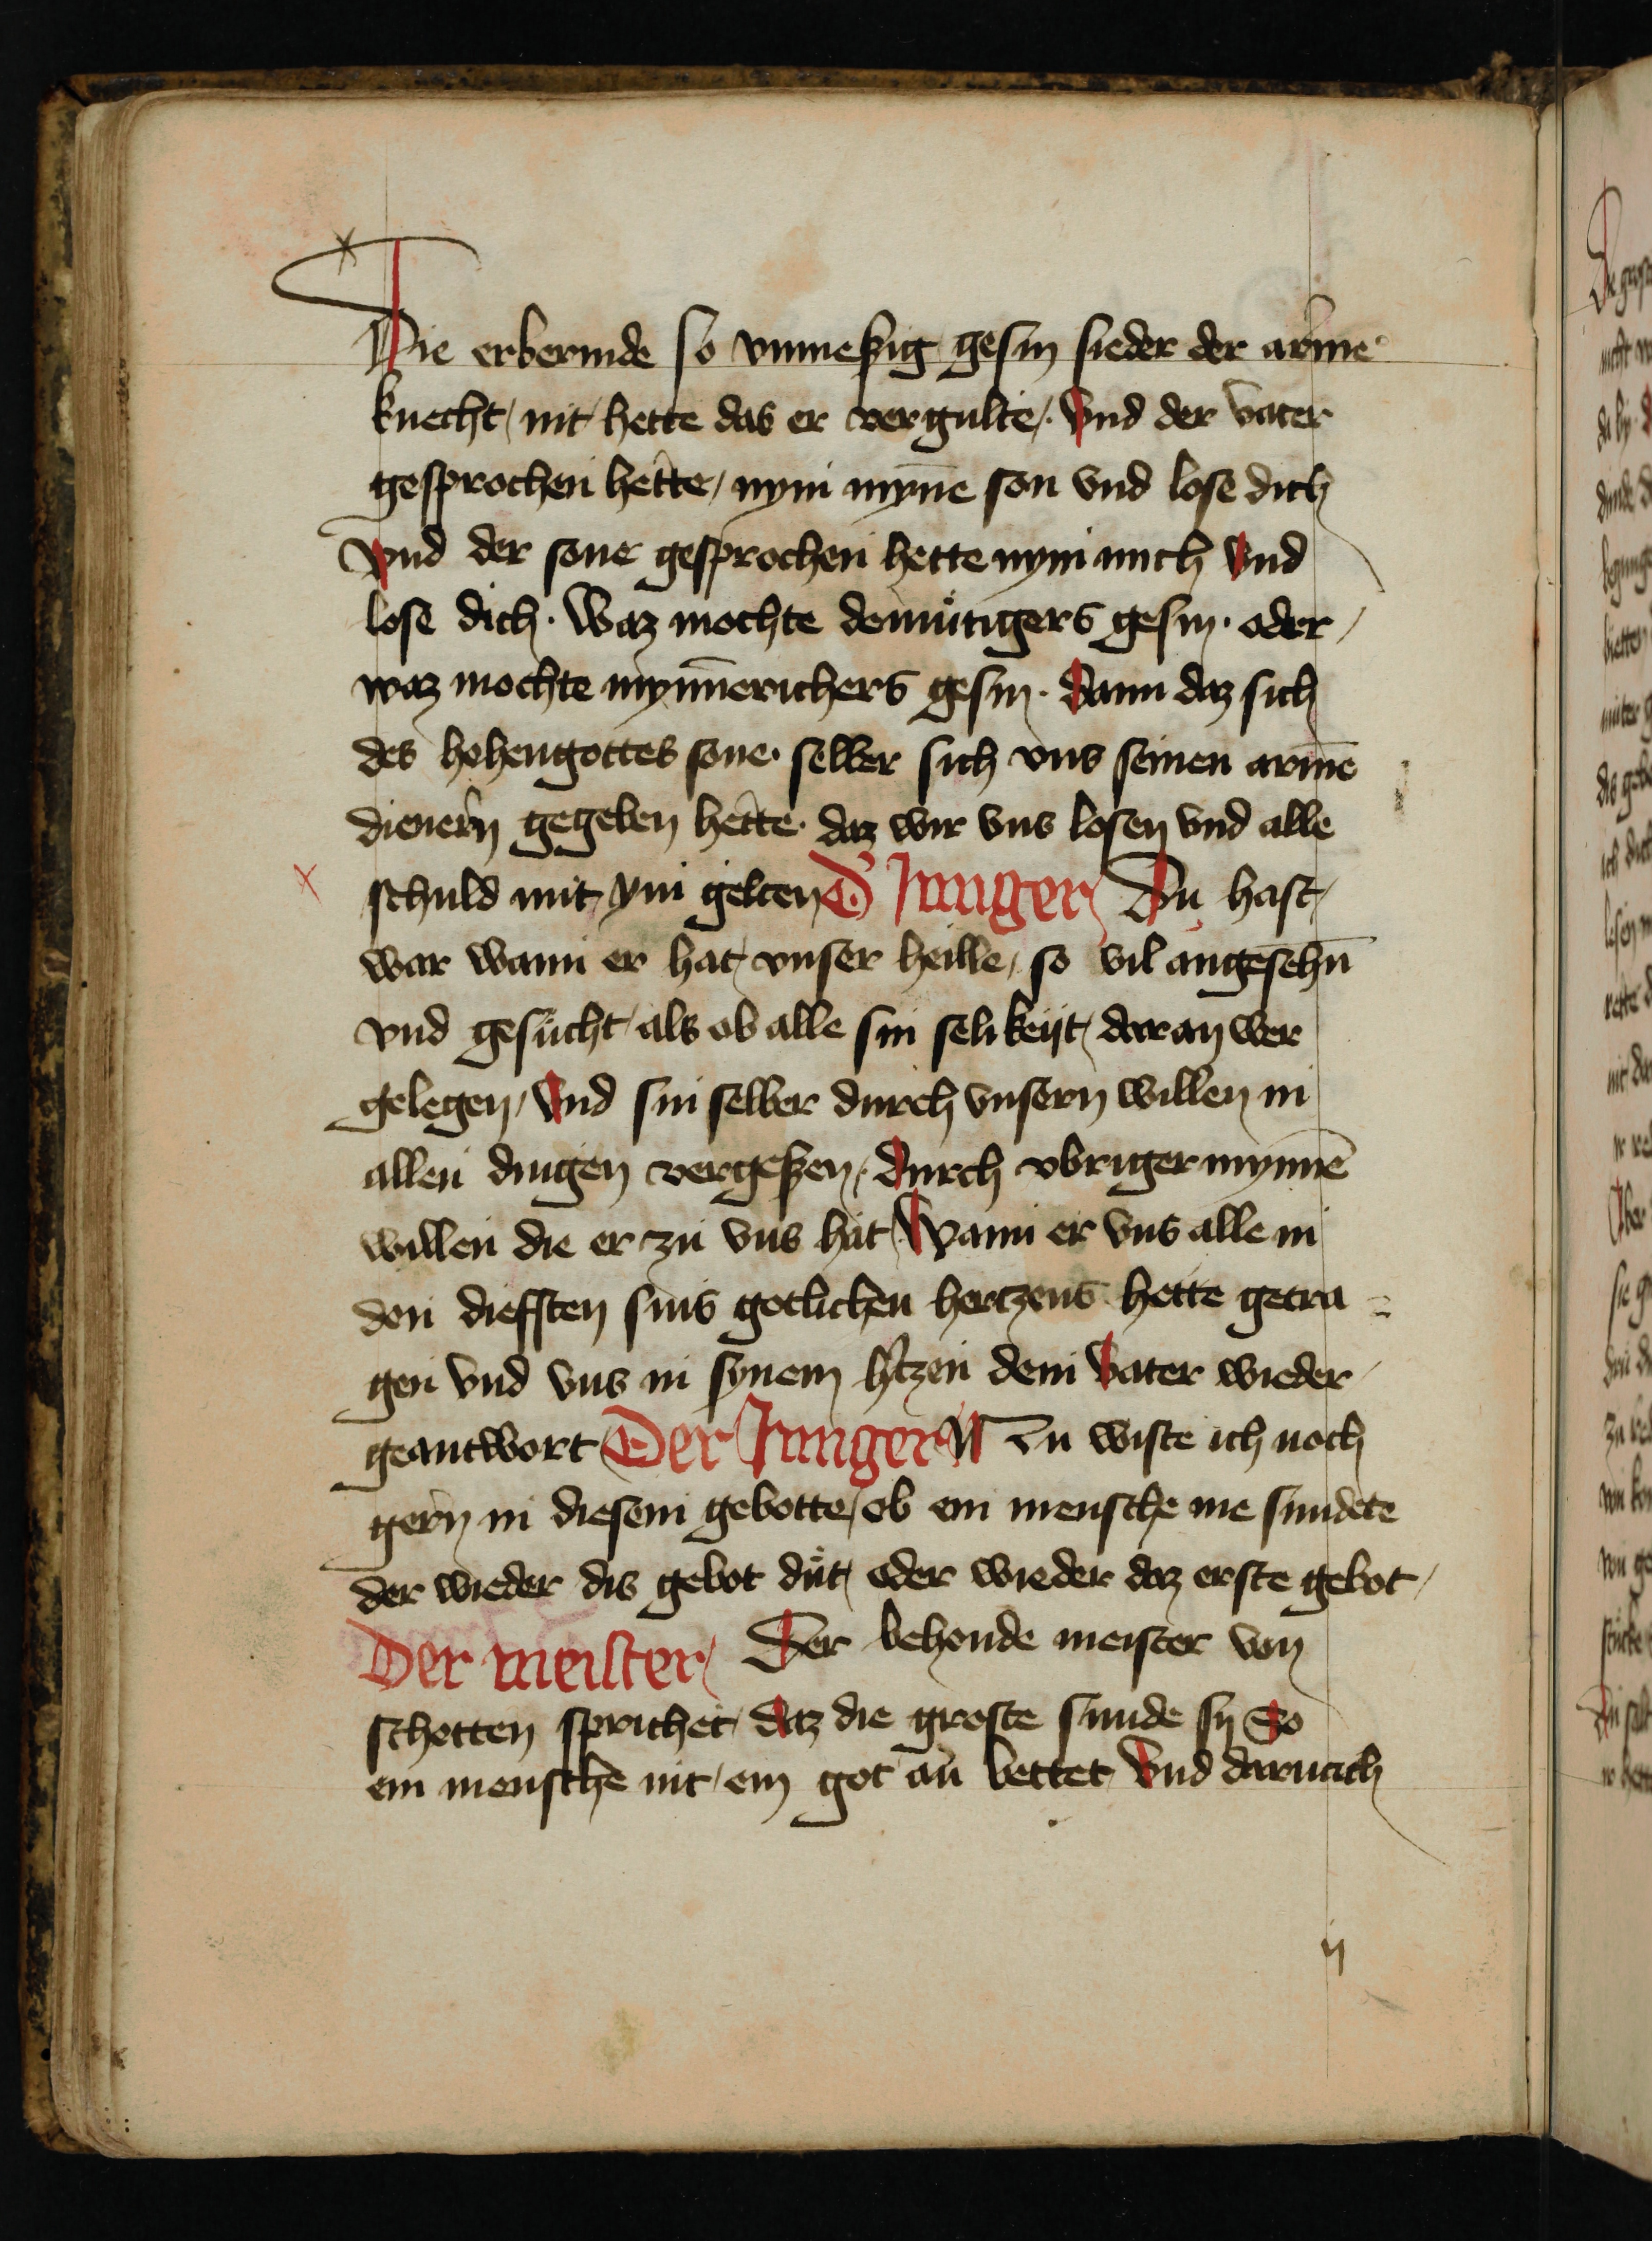 Die erbermde so vnmeßig gesin sieder der arme
knecht / nit hette das er vergulte /. Vnd der vater
gesprochen hette / nym mynē son vnd lose dich
Vnd der sone gesprochen hette nym mich Vnd
lose dich · Waz mochte demůtigers gesin · oder /
waz mochte mynnērichers gesin · Dann daz sich
des hohengottes sone · selber sich vns seinen armē
dienern gegeben hette · daz wir vns losen vnd alle
schuld mit ym gelten D' Junger / Du hast /
war wann er hat / vnser heille / so vil angesehn̄
vnd gesůcht / als ob alle sin selikeijt / daran wer
gelegen / Vnd sin selber durch vnsern willen in
allen dingen vergeßen /. Durch vbriger mynnē
willen die er zu vns hat / Wann er vns alle in
den dieffsten sins gotlichen hertzens hette getra =
gen vnd vns in synem h'tzen dem Vater wieder /
geantwort Der Junger Nu wiste ich noch
gern in diesem gebotte / ob ein mensche me sundete
der wieder dis gebot důt / oder wieder daz erste gebot /
Der meister / Der behende meister von
schotten sprichet / daz die groste sunde sij So
ein mensche nit / ein got an bettet / Vnd darnach
ij